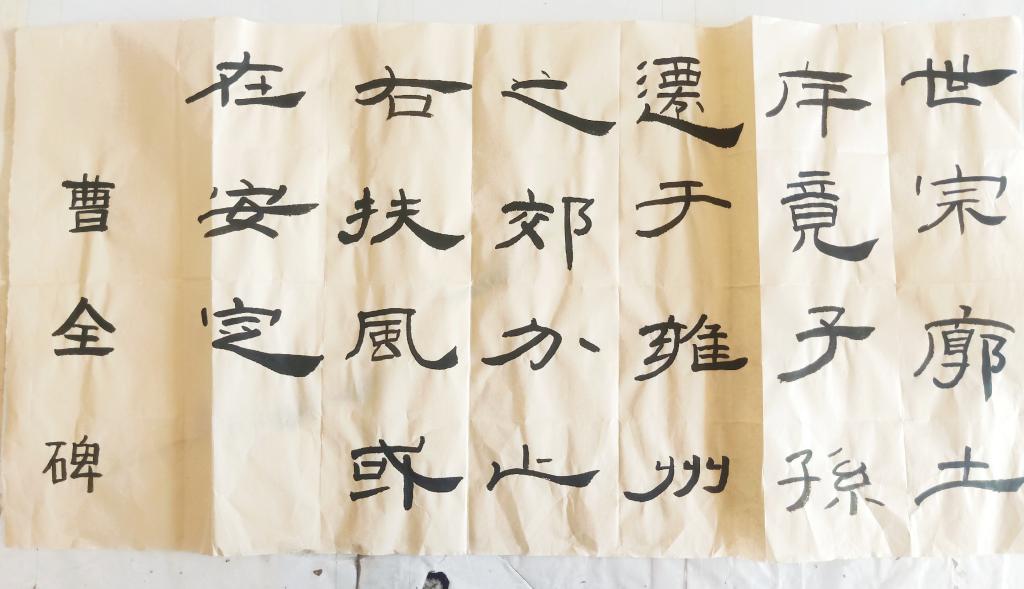 世宗廓土
斥竟子孫
遷于雍州
之郊分止
右扶風或
在安定
曹全碑